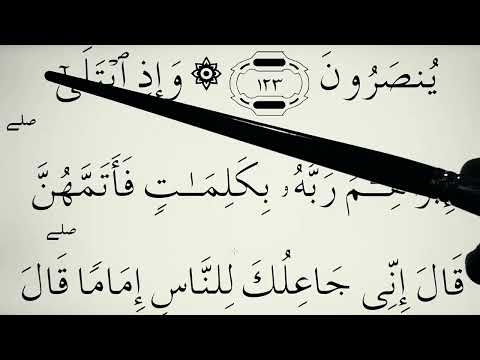 يُنصَرُونَ ١٢٣ ۞ وَإِذِ ٱبْتَلَىٰٓ
رَبُّهُۥ بِكَلِمَـٰتٍ فَأَتَمَّهُنَّۖ
قَالَ إِنِّى جَاعِلُكَ لِلنَّاسِ إِمَامًاۖ قَالَ